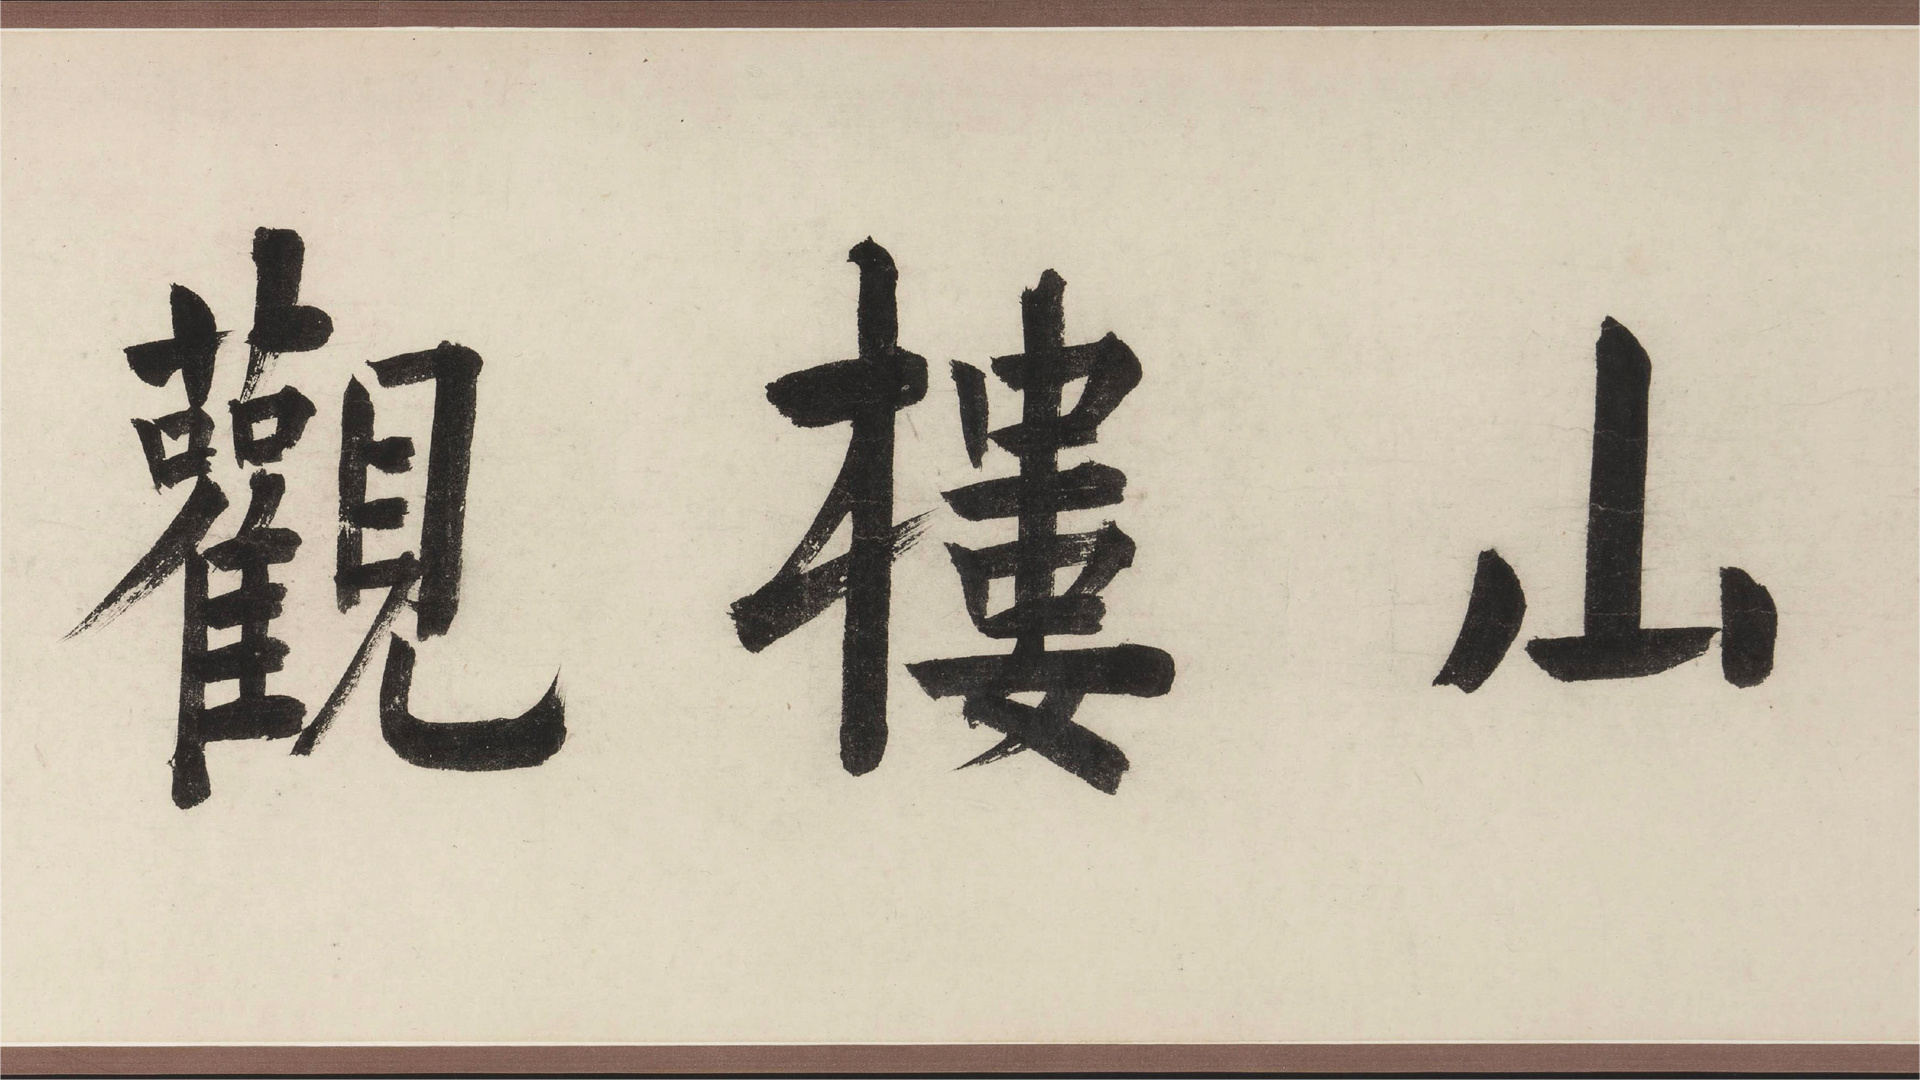 山樓觀